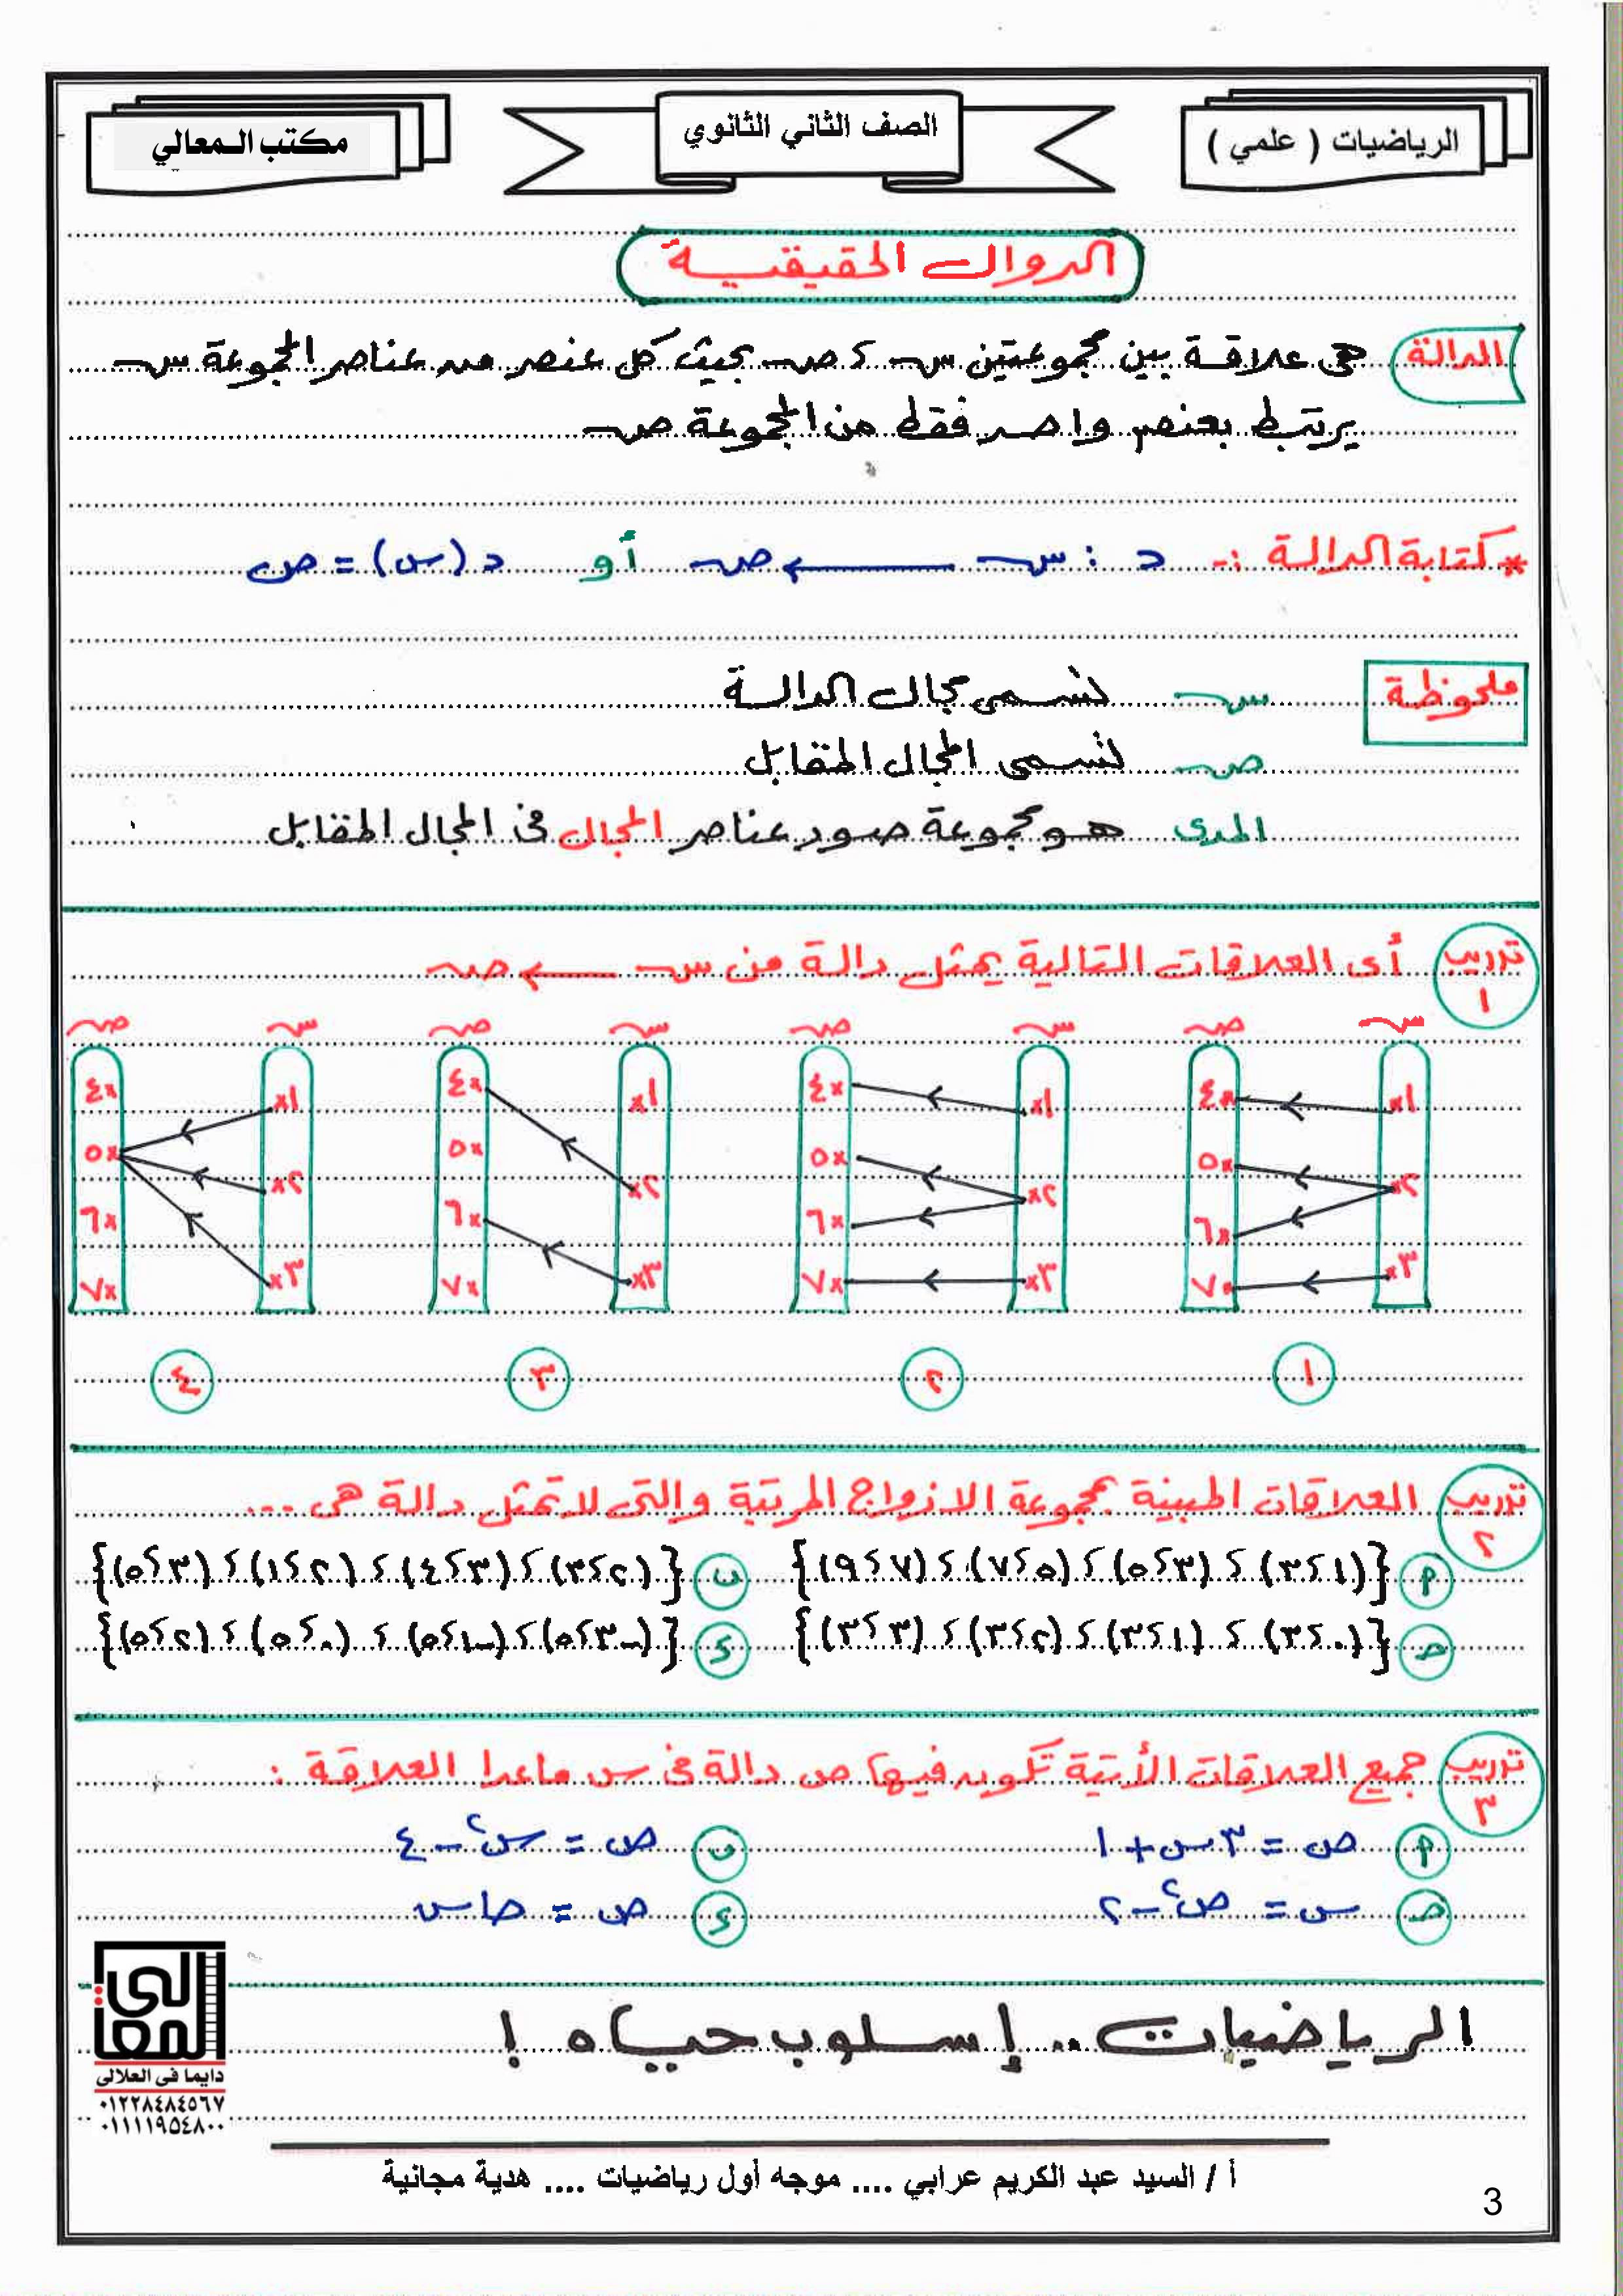 الرياضيات ( علمي )
الصف الثاني الثانوي
مكتب المعالي
الدوال الحقيقية
الدالة هى علاقة بين مجموعتين سـ ، صـ بحيث كل عنصر من عناصر المجموعة سـ
يرتبط بعنصر واحد فقط من المجموعة صـ
* كتابة الدالة :- د : سـ ← صـ أو د (س) = ص
ملحوظة سـ تسمى مجال الدالة
صـ تسمى المجال المقابل
المدى هو مجموعة صور عناصر المجال فى المجال المقابل
تدريب ١ أى العلاقات التالية يمثل دالة من سـ ← صـ
سـ صـ سـ صـ سـ صـ سـ صـ
١ ٤ ١ ٤ ١ ٤ ١ ٤
٢ ٥ ٢ ٥ ٢ ٥ ٢ ٥
٦ ٦ ٦ ٦
٣ ٧ ٣ ٧ ٣ ٧ ٣ ٧
١ ٢ ٣ ٤
تدريب ٢ العلاقات المبينة بمجموعة الازواج المرتبة والتى لا تمثل دالة هى ...
أ {(١ ، ٣) ، (٣ ، ٥) ، (٥ ، ٧) ، (٧ ، ٩)} ب {(٢ ، ٣) ، (٣ ، ٤) ، (٢ ، ١) ، (٣ ، ٥)}
جـ {(٠ ، ٣) ، (١ ، ٣) ، (٢ ، ٣) ، (٣ ، ٣)} د {(-٣ ، ٥) ، (-١ ، ٥) ، (٠ ، ٥) ، (٢ ، ٥)}
تدريب ٣ جميع العلاقات الأتية تكون فيها ص دالة فى س ماعدا العلاقة :
أ ص = ٣س + ١ ب ص = س² - ٤
جـ س = ص² - ٢ د ص = حا س
الرياضيات .. إسلوب حياه !
المعالى
دايما فى العلالى
٠١٢٢٨٤٨٤٥٦٧
٠١١١١٩٥٤٨٠٠
أ / السيد عبد الكريم عرابي .... موجه أول رياضيات .... هدية مجانية
3